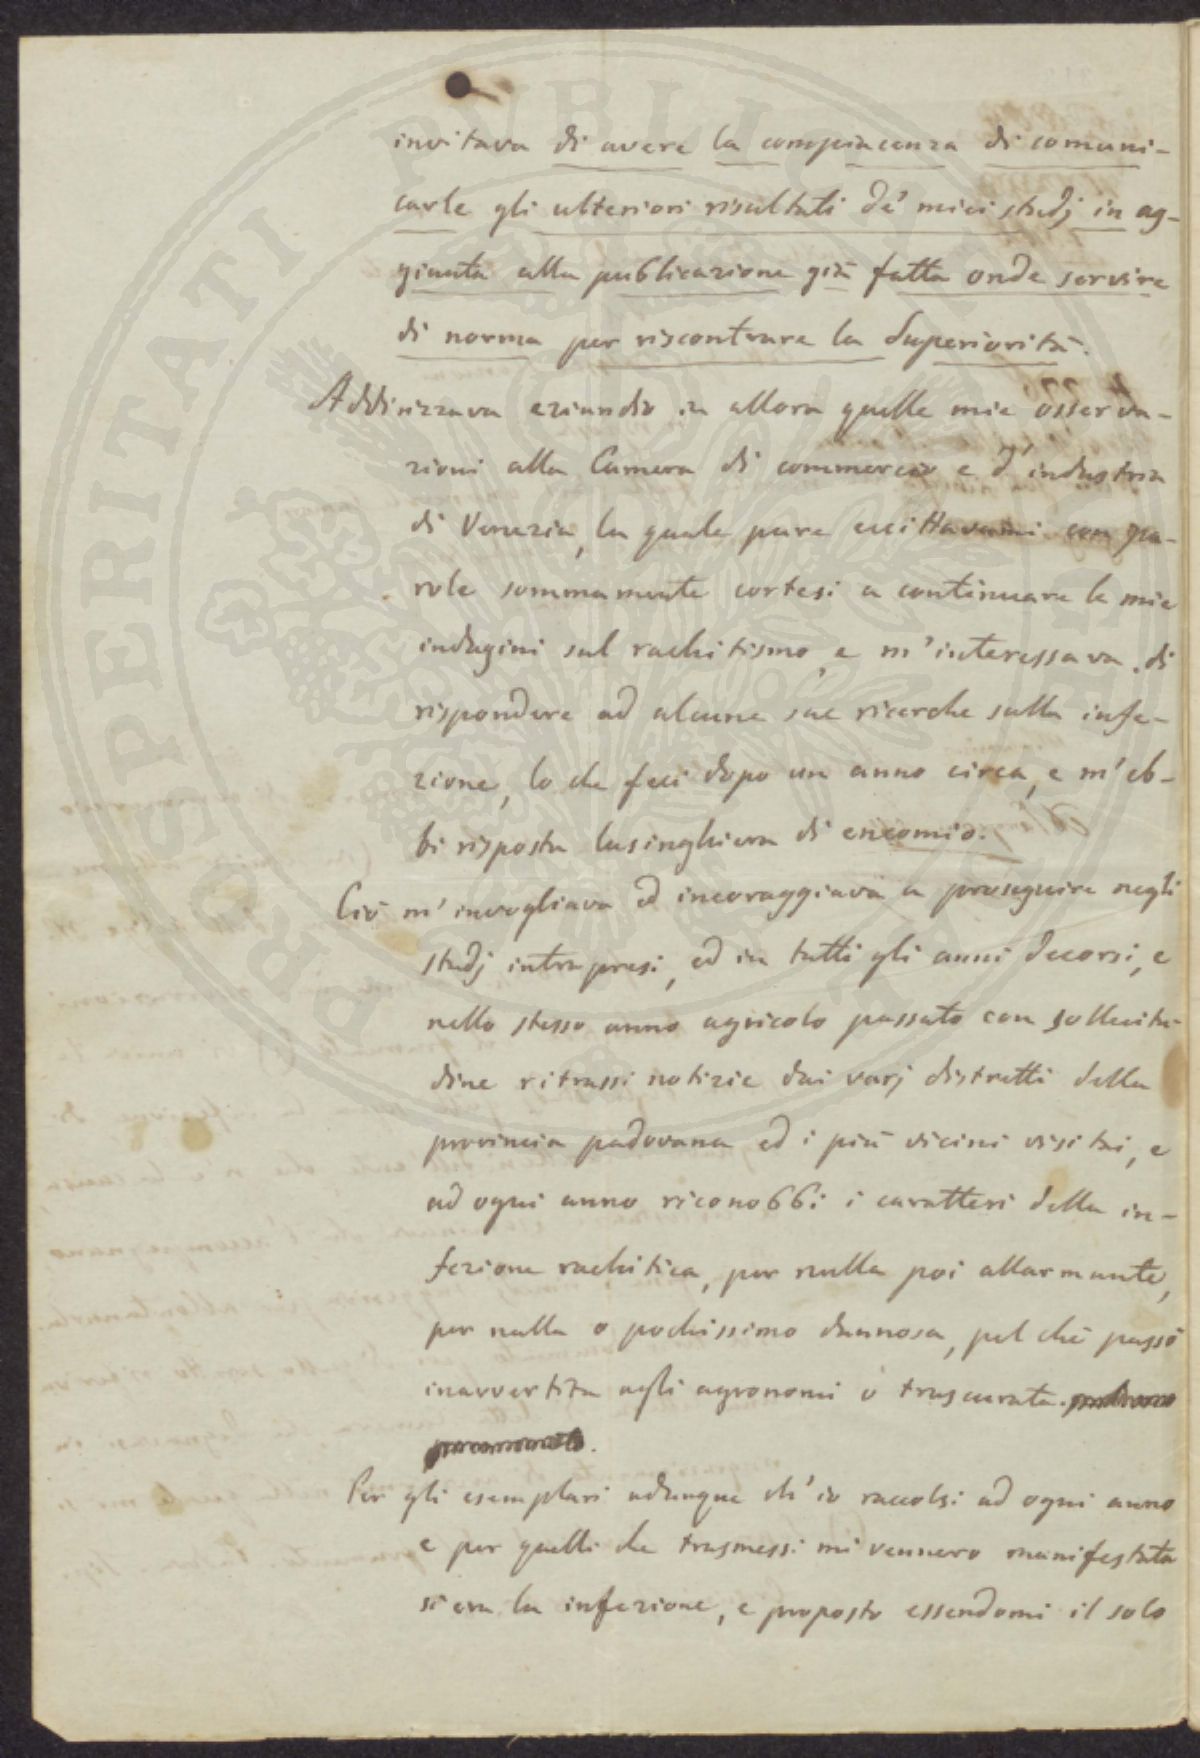 invitava di avere la compiacenza di comuni-
carle gli ulteriori risultati de' miei studj in ag-
giunta alla publicazione già fatta onde servire
di norma per riscontrare la Superiorità.
Addirizzava eziandio in allora quelle mie osserva-
zioni alla Camera di commercio e d'industria
di Venezia, la quale pure eccittavami con pa-
role sommamente cortesi a continuare le mie
indagini sul rachitismo, e m'interessava di
rispondere ad alcune sue ricerche sulla infe-
zione, lo che feci dopo un anno circa, e m'eb-
bi risposta lusinghiera di encomio.
Ciò m'invogliava ed incoraggiava a proseguire negli
studj intrapresi, ed in tutti gli anni decorsi, e
nello stesso anno agricolo passato con sollecitu-
dine ritrassi notizie dai varj distretti della
provincia padovana ed i più vicini visitai, e
ad ogni anno riconobbi i caratteri della in-
fezione rachitica, per nulla poi allarmante,
per nulla o pochissimo dannosa, pel chè passò
inavvertita agli agronomi o trascurata.
Per gli esemplari adunque ch'io raccolsi ad ogni anno
e per quelli che trasmessi mi vennero manifestata
si era la infezione, e proposto essendomi il solo
PROSPERITATI PUBLICAE